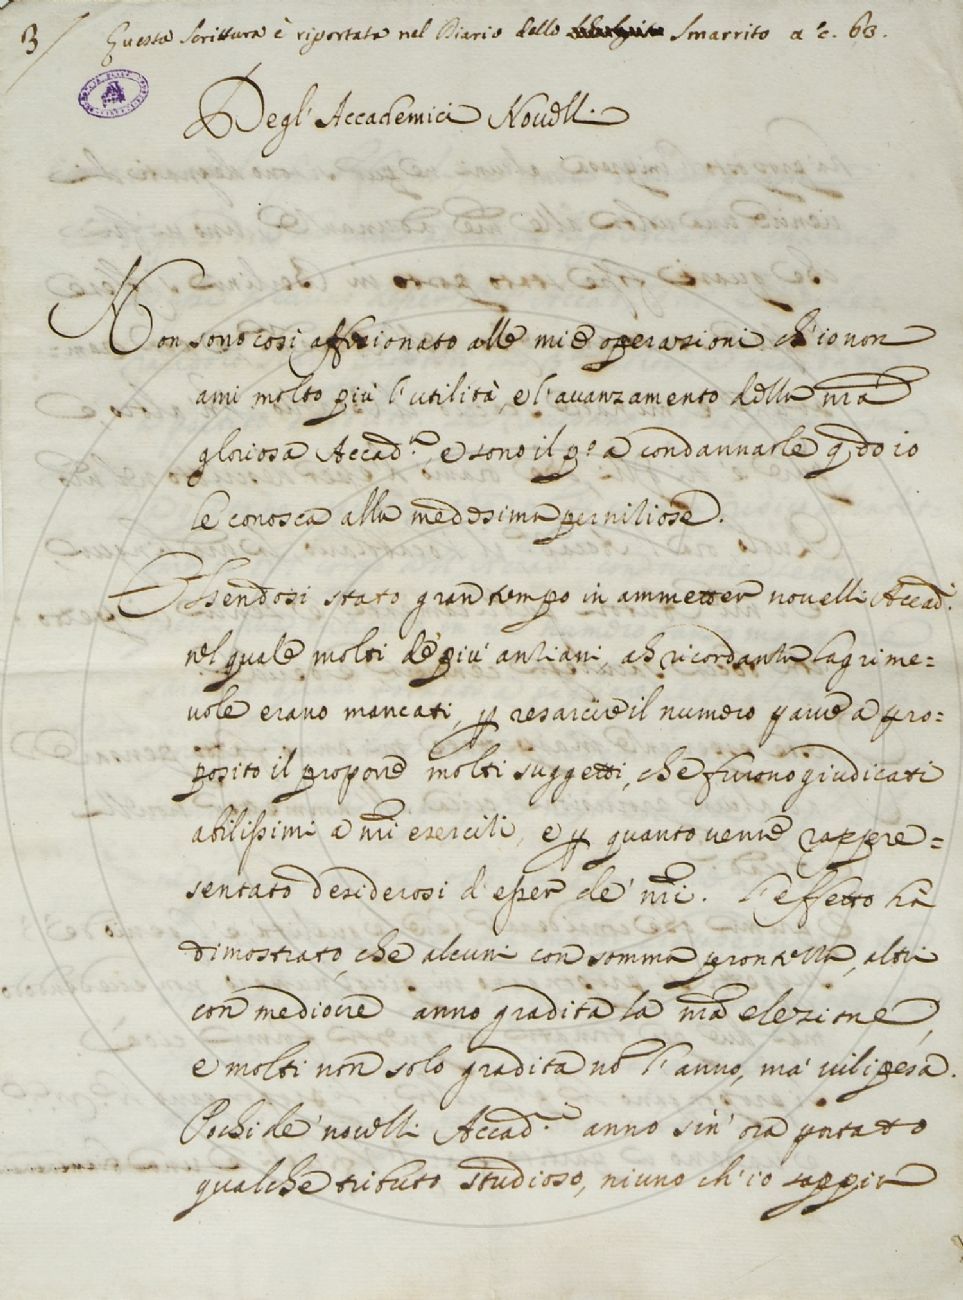 3
Questa Scrittura è riportata nel Diario dello Smarrito a c. 63.
Degl' Accademici Novelli
Non sono così affezionato alle mie operazioni ch'io non
ami molto più l'utilità, e l'avanzamento della nrã
gloriosa Accad.ª e sono il p.º a condannarle q̃do io
le conosca alla medesima perniziose.
Essendosi stato gran tempo in ammetter novelli Accad.i
nel quale molti de' più anziani, ah ricordanza lagrime=
vole erano mancati, ꝑ resarcire il numero parve a pro=
posito il proporre molti suggetti, che furono giudicati
abilissimi a nrĩ esercizi, e ꝑ quanto venne rappre=
sentato desiderosi d'esser de' nrĩ. L'effetto hà
dimostrato, che alcuni con somma prontezza, altri
con mediocre anno gradita la nrã elezione,
e molti non solo gradita nõ l'anno, ma' vilipesa.
Pochi de' novelli Accad.ci anno sin' ora portato
qualche tributo studioso, niuno ch'io sappia